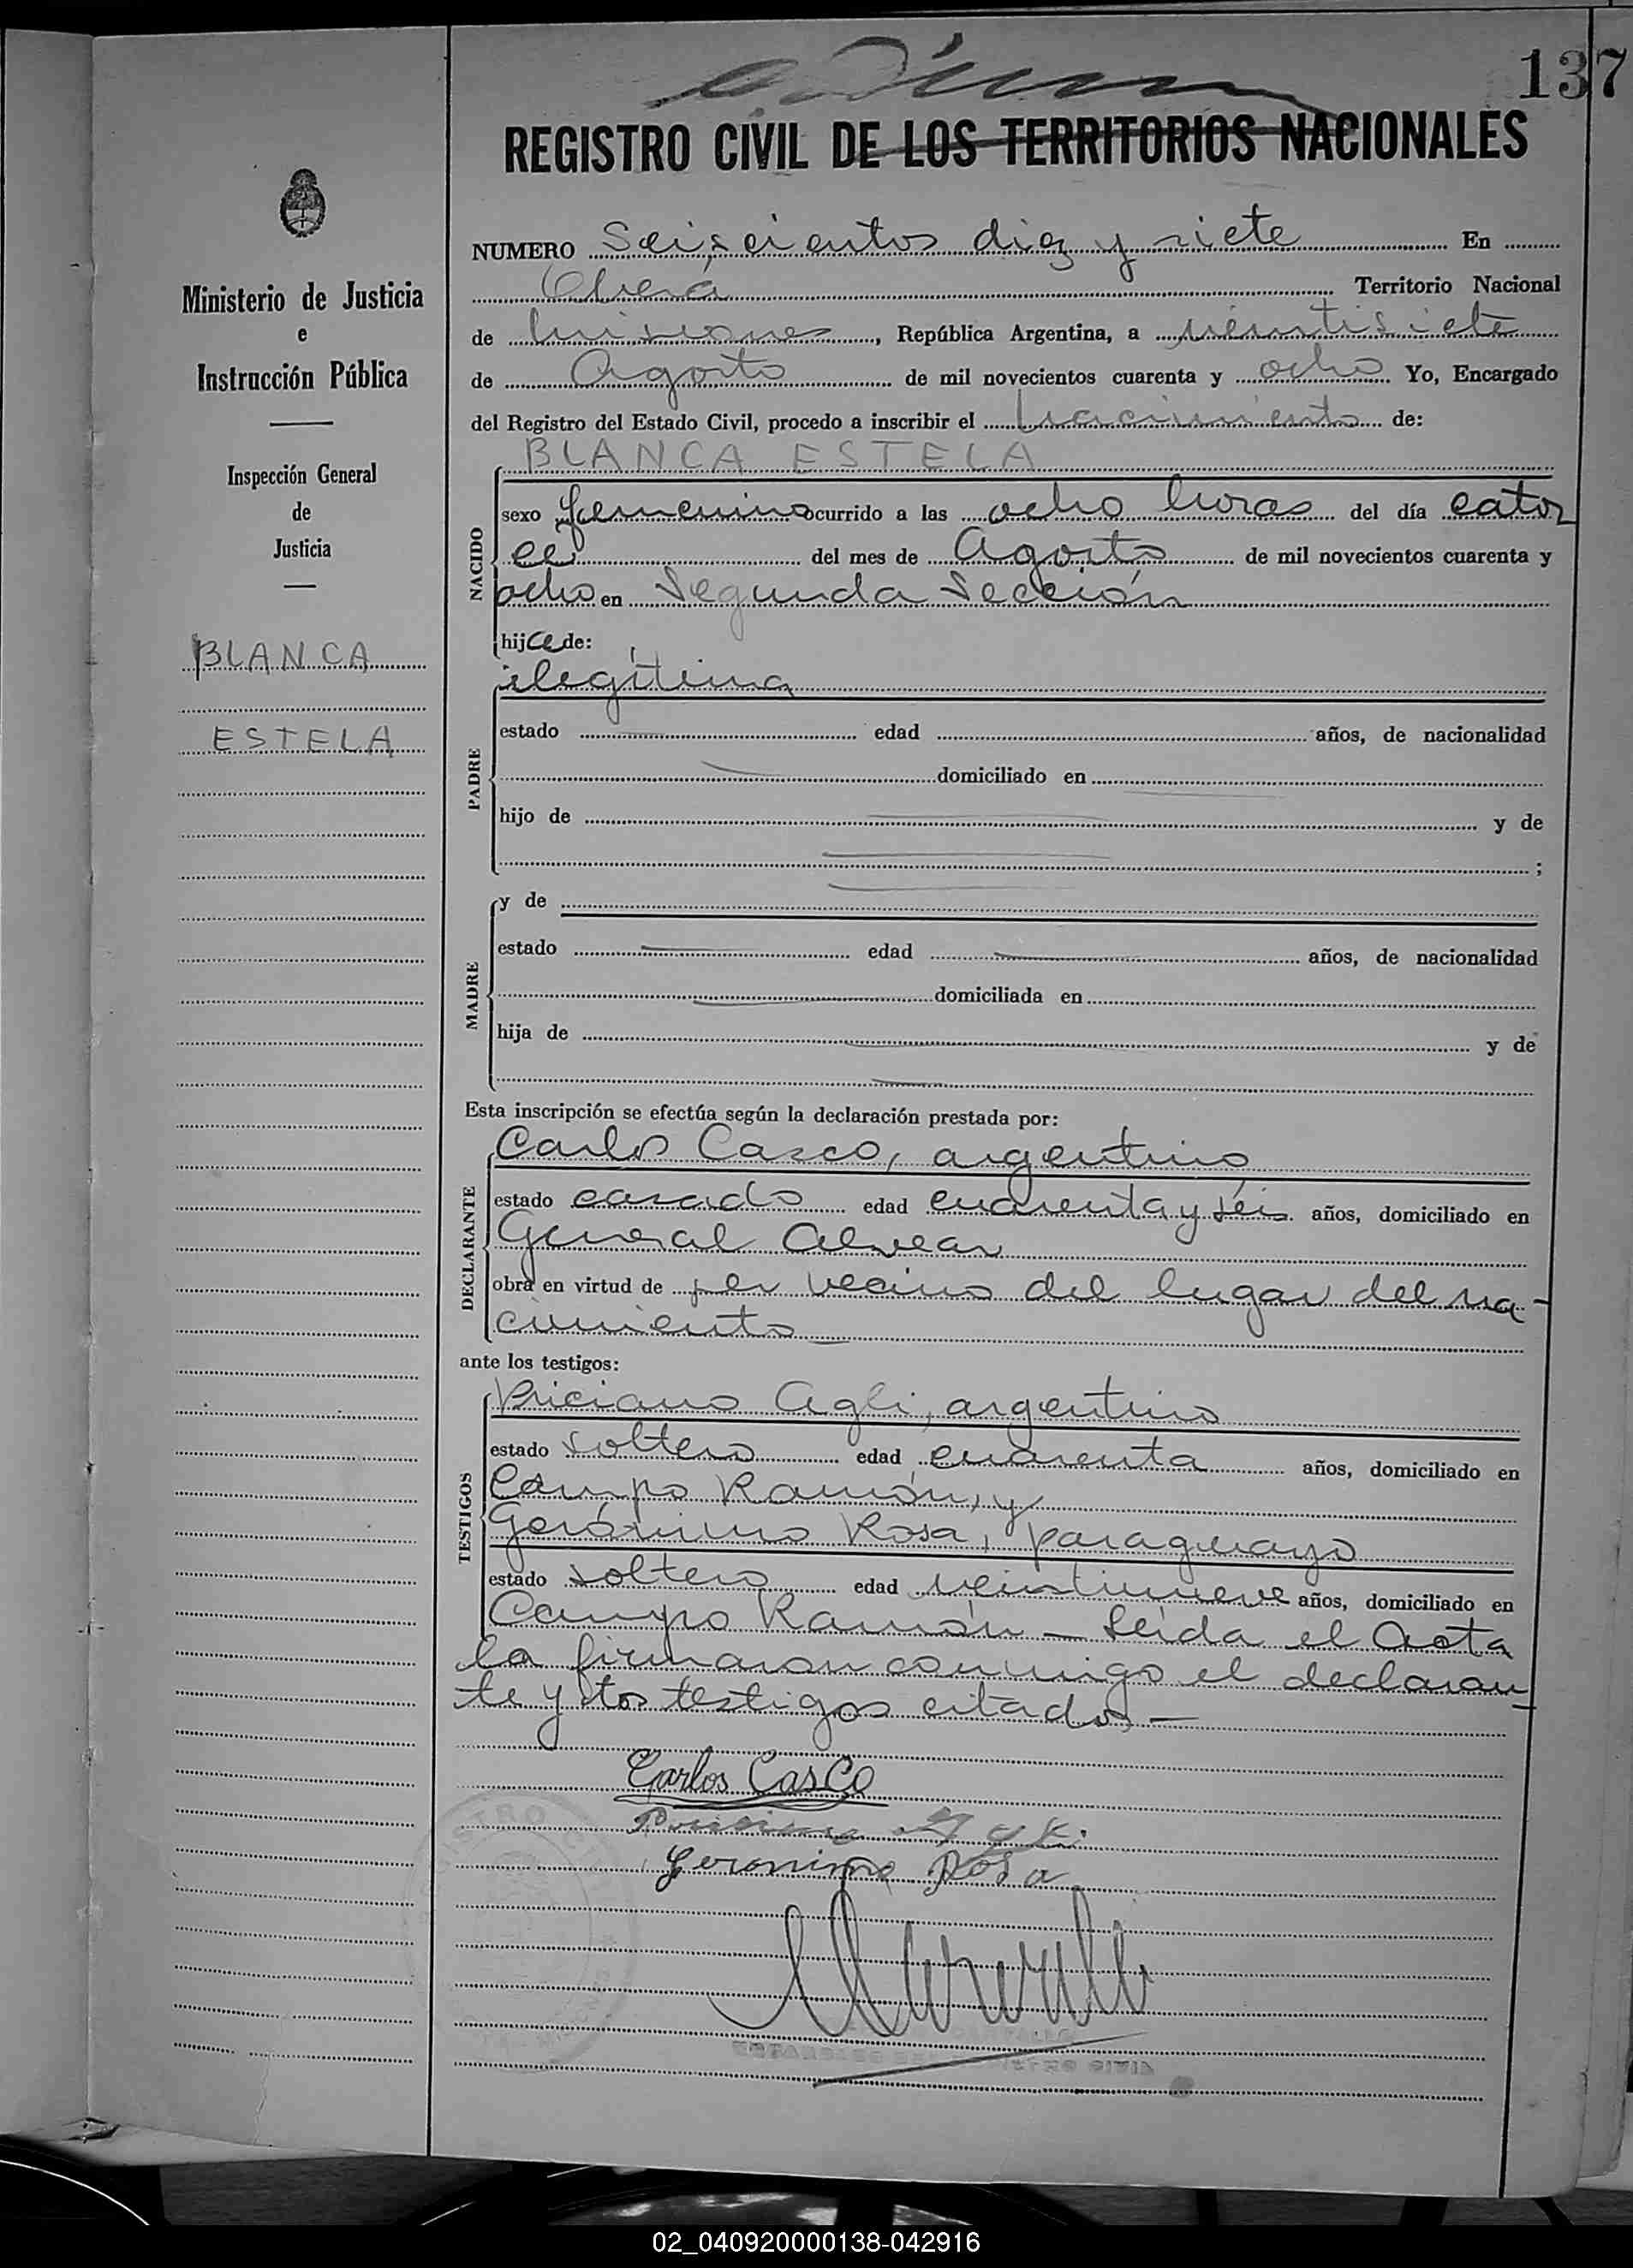 137
REGISTRO CIVIL DE LOS TERRITORIOS NACIONALES
Ministerio de Justicia
e
Instrucción Pública
Inspección General
de
Justicia
BLANCA
ESTELA
NUMERO Seiscientos diez y siete En
Oberá Territorio Nacional
de Misiones, República Argentina, a veintisiete
de Agosto de mil novecientos cuarenta y ocho Yo, Encargado
del Registro del Estado Civil, procedo a inscribir el nacimiento de:
BLANCA ESTELA
NACIDO
sexo femenino ocurrido a las ocho horas del día cator
ce del mes de Agosto de mil novecientos cuarenta y
ocho en Segunda Sección
hija de:
ilegítima
PADRE
estado edad años, de nacionalidad
domiciliado en
hijo de y de
;
MADRE
y de
estado edad años, de nacionalidad
domiciliada en
hija de y de
Esta inscripción se efectúa según la declaración prestada por:
DECLARANTE
Carlos Casco, argentino
estado casado edad cuarenta y seis años, domiciliado en
General Alvear
obra en virtud de ser vecino del lugar del na-
cimiento
ante los testigos:
TESTIGOS
Priciano Agli, argentino
estado soltero edad cuarenta años, domiciliado en
Campo Ramón, y
Gerónimo Rosa, paraguayo
estado soltero edad veintinueve años, domiciliado en
Campo Ramón — Leída el Acta
la firmaron conmigo el declaran-
te y los testigos citados —
Carlos Casco
Geronimo Rosa
02_040920000138-042916